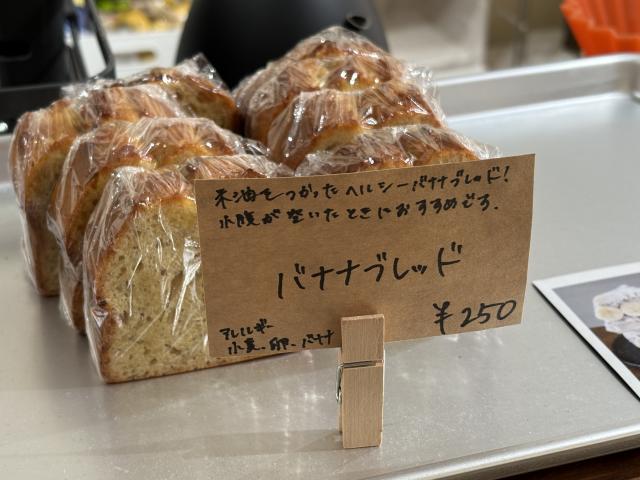 米油をつかったヘルシーバナナブレッド!
小腹が空いたときにおすすめです.
バナナブレッド
¥250
アレルギー
小麦、卵、バナナ